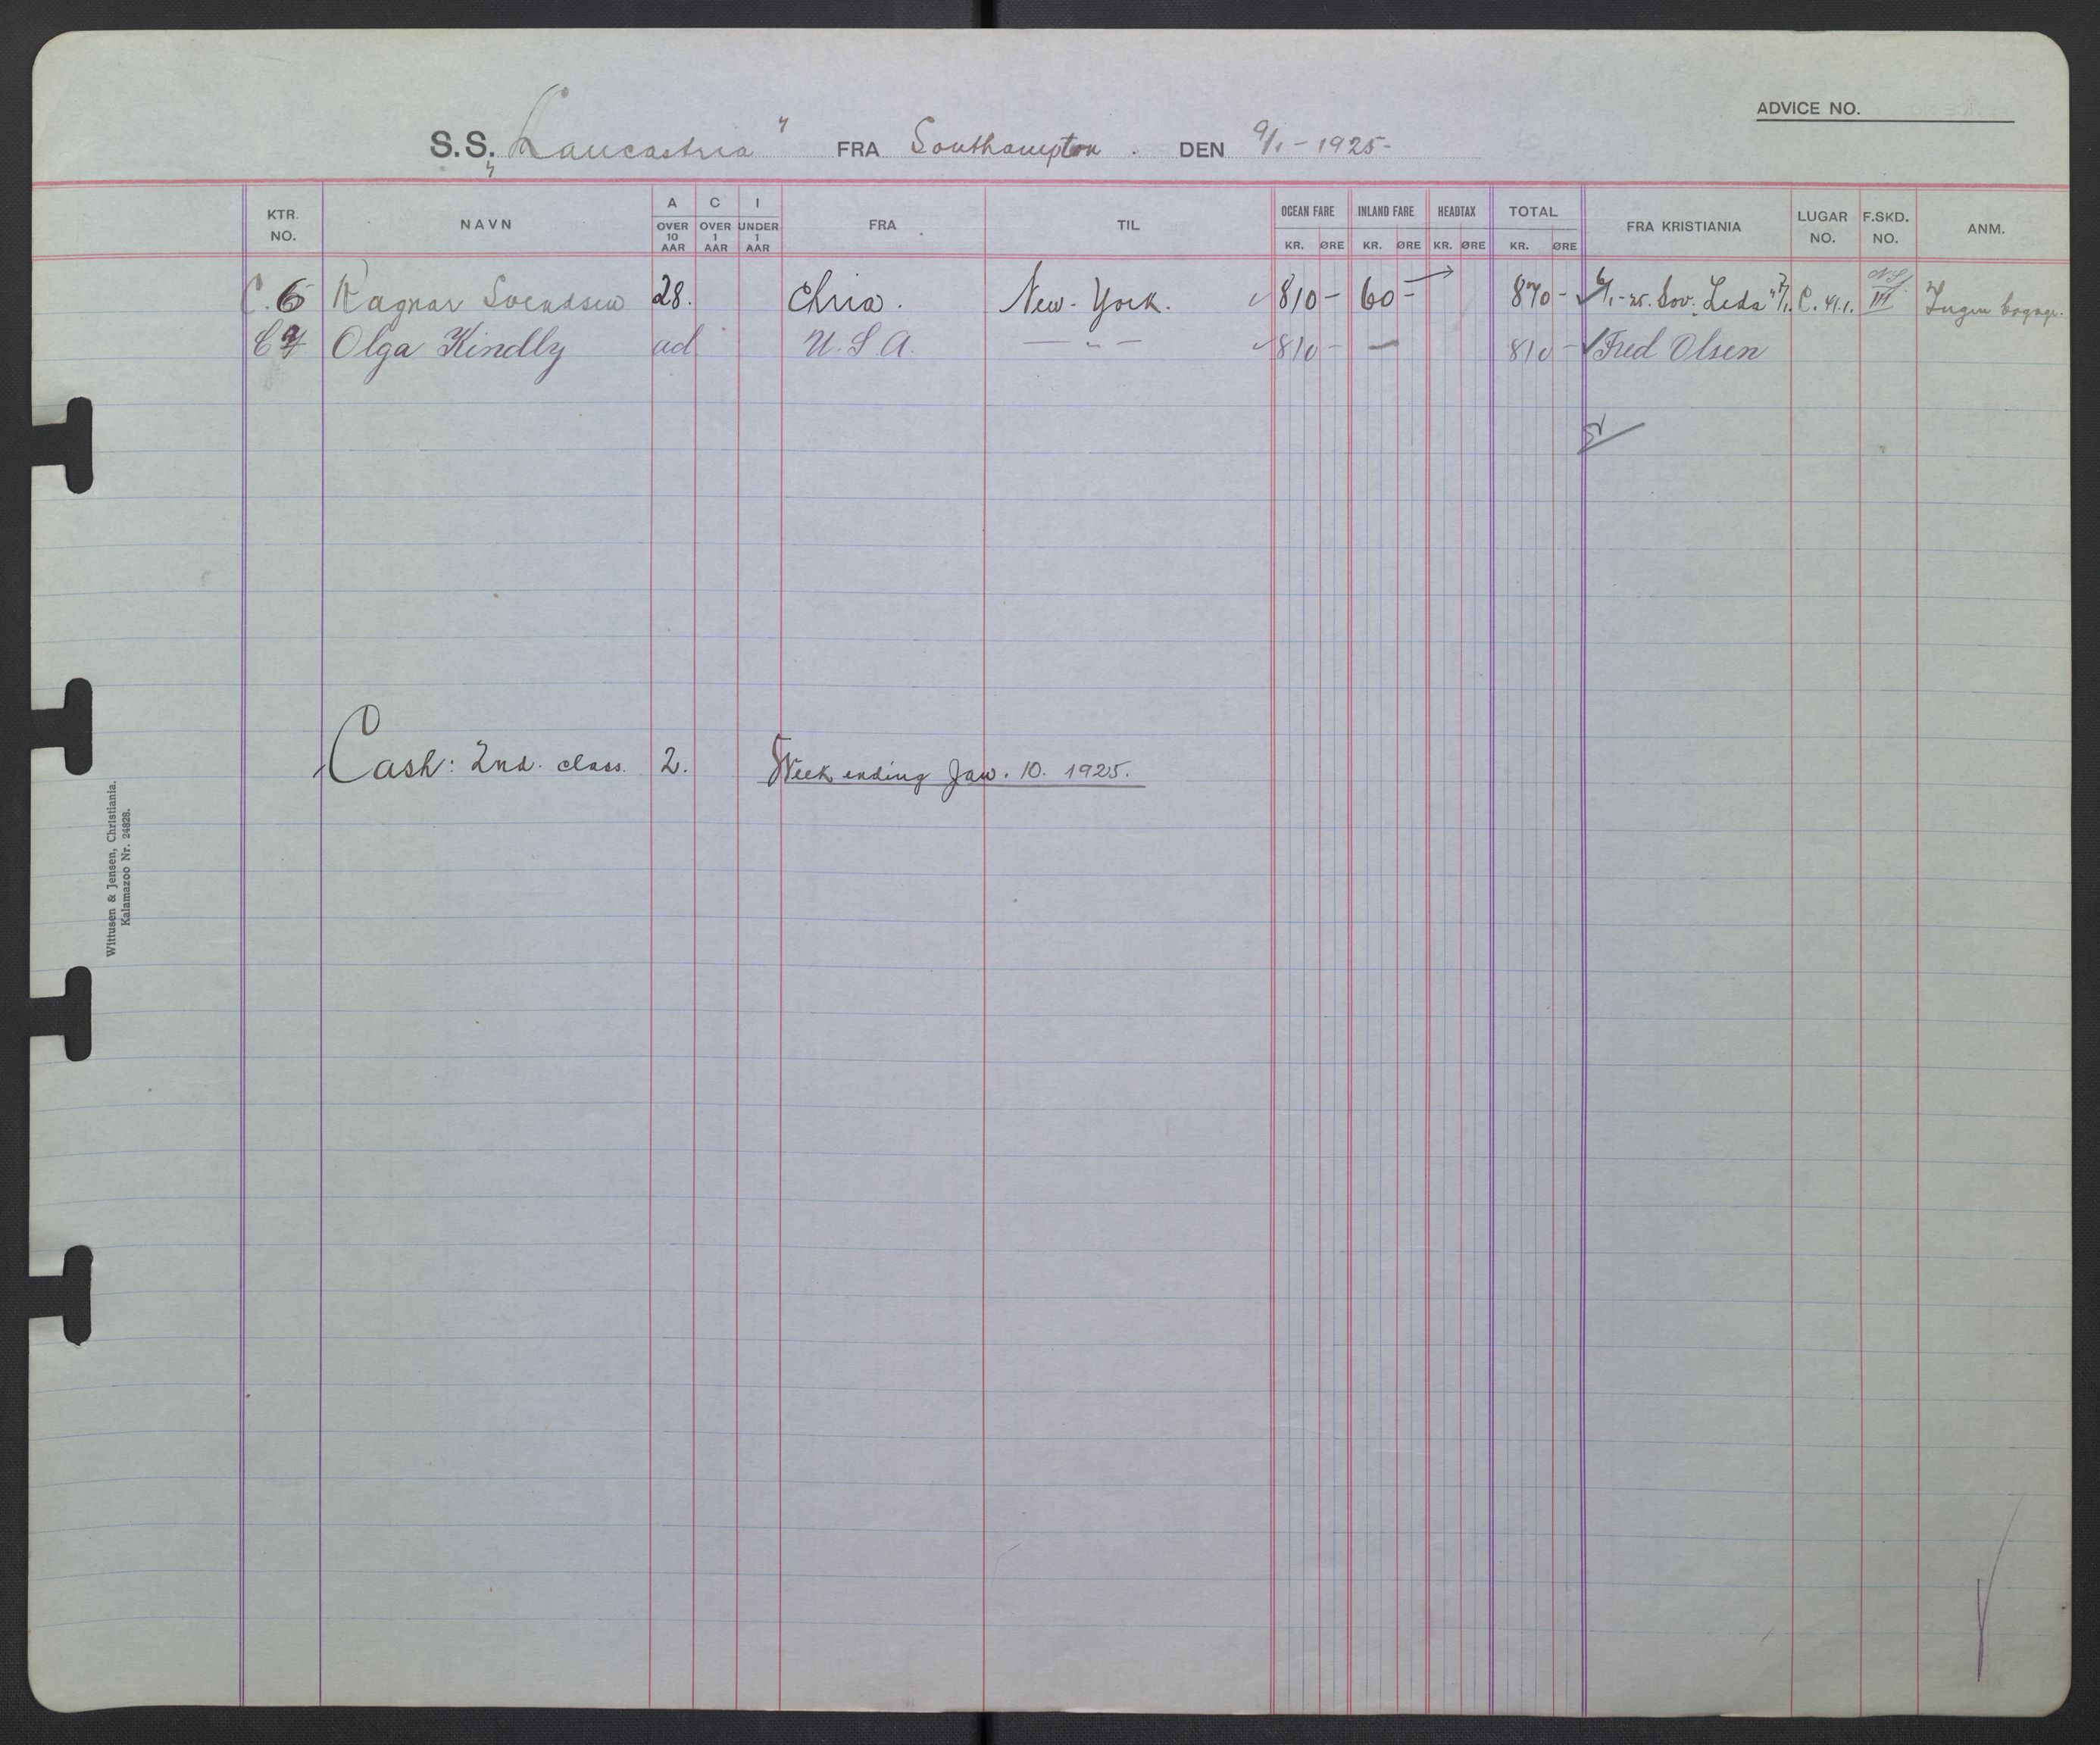 ADVICE NO.
S.S. „Lancastria" FRA Southampton. DEN 9/1-1925-
KTR. NO. NAVN A OVER 10 AAR C OVER 1 AAR I UNDER 1 AAR FRA TIL OCEAN FARE KR. ØRE INLAND FARE KR. ØRE HEADTAX KR. ØRE TOTAL KR. ØRE FRA KRISTIANIA LUGAR NO. F.SKD. NO. ANM.
C. 6 Ragnar Svendsen 28. Chria. New-York. ✓ 810- 60- 870- ✓ 6/1-25. Leda 7/1. C. 41.1. III Ingen bagage.
C 7 Olga Kindlby ad U.S.A. — „ — ✓ 810- — 810- ✓ Fred Olsen
Cash: 2nd. class. 2. Week ending Jan. 10. 1925.
Wittusen & Jensen, Christiania.
Kalamazoo Nr. 24828.